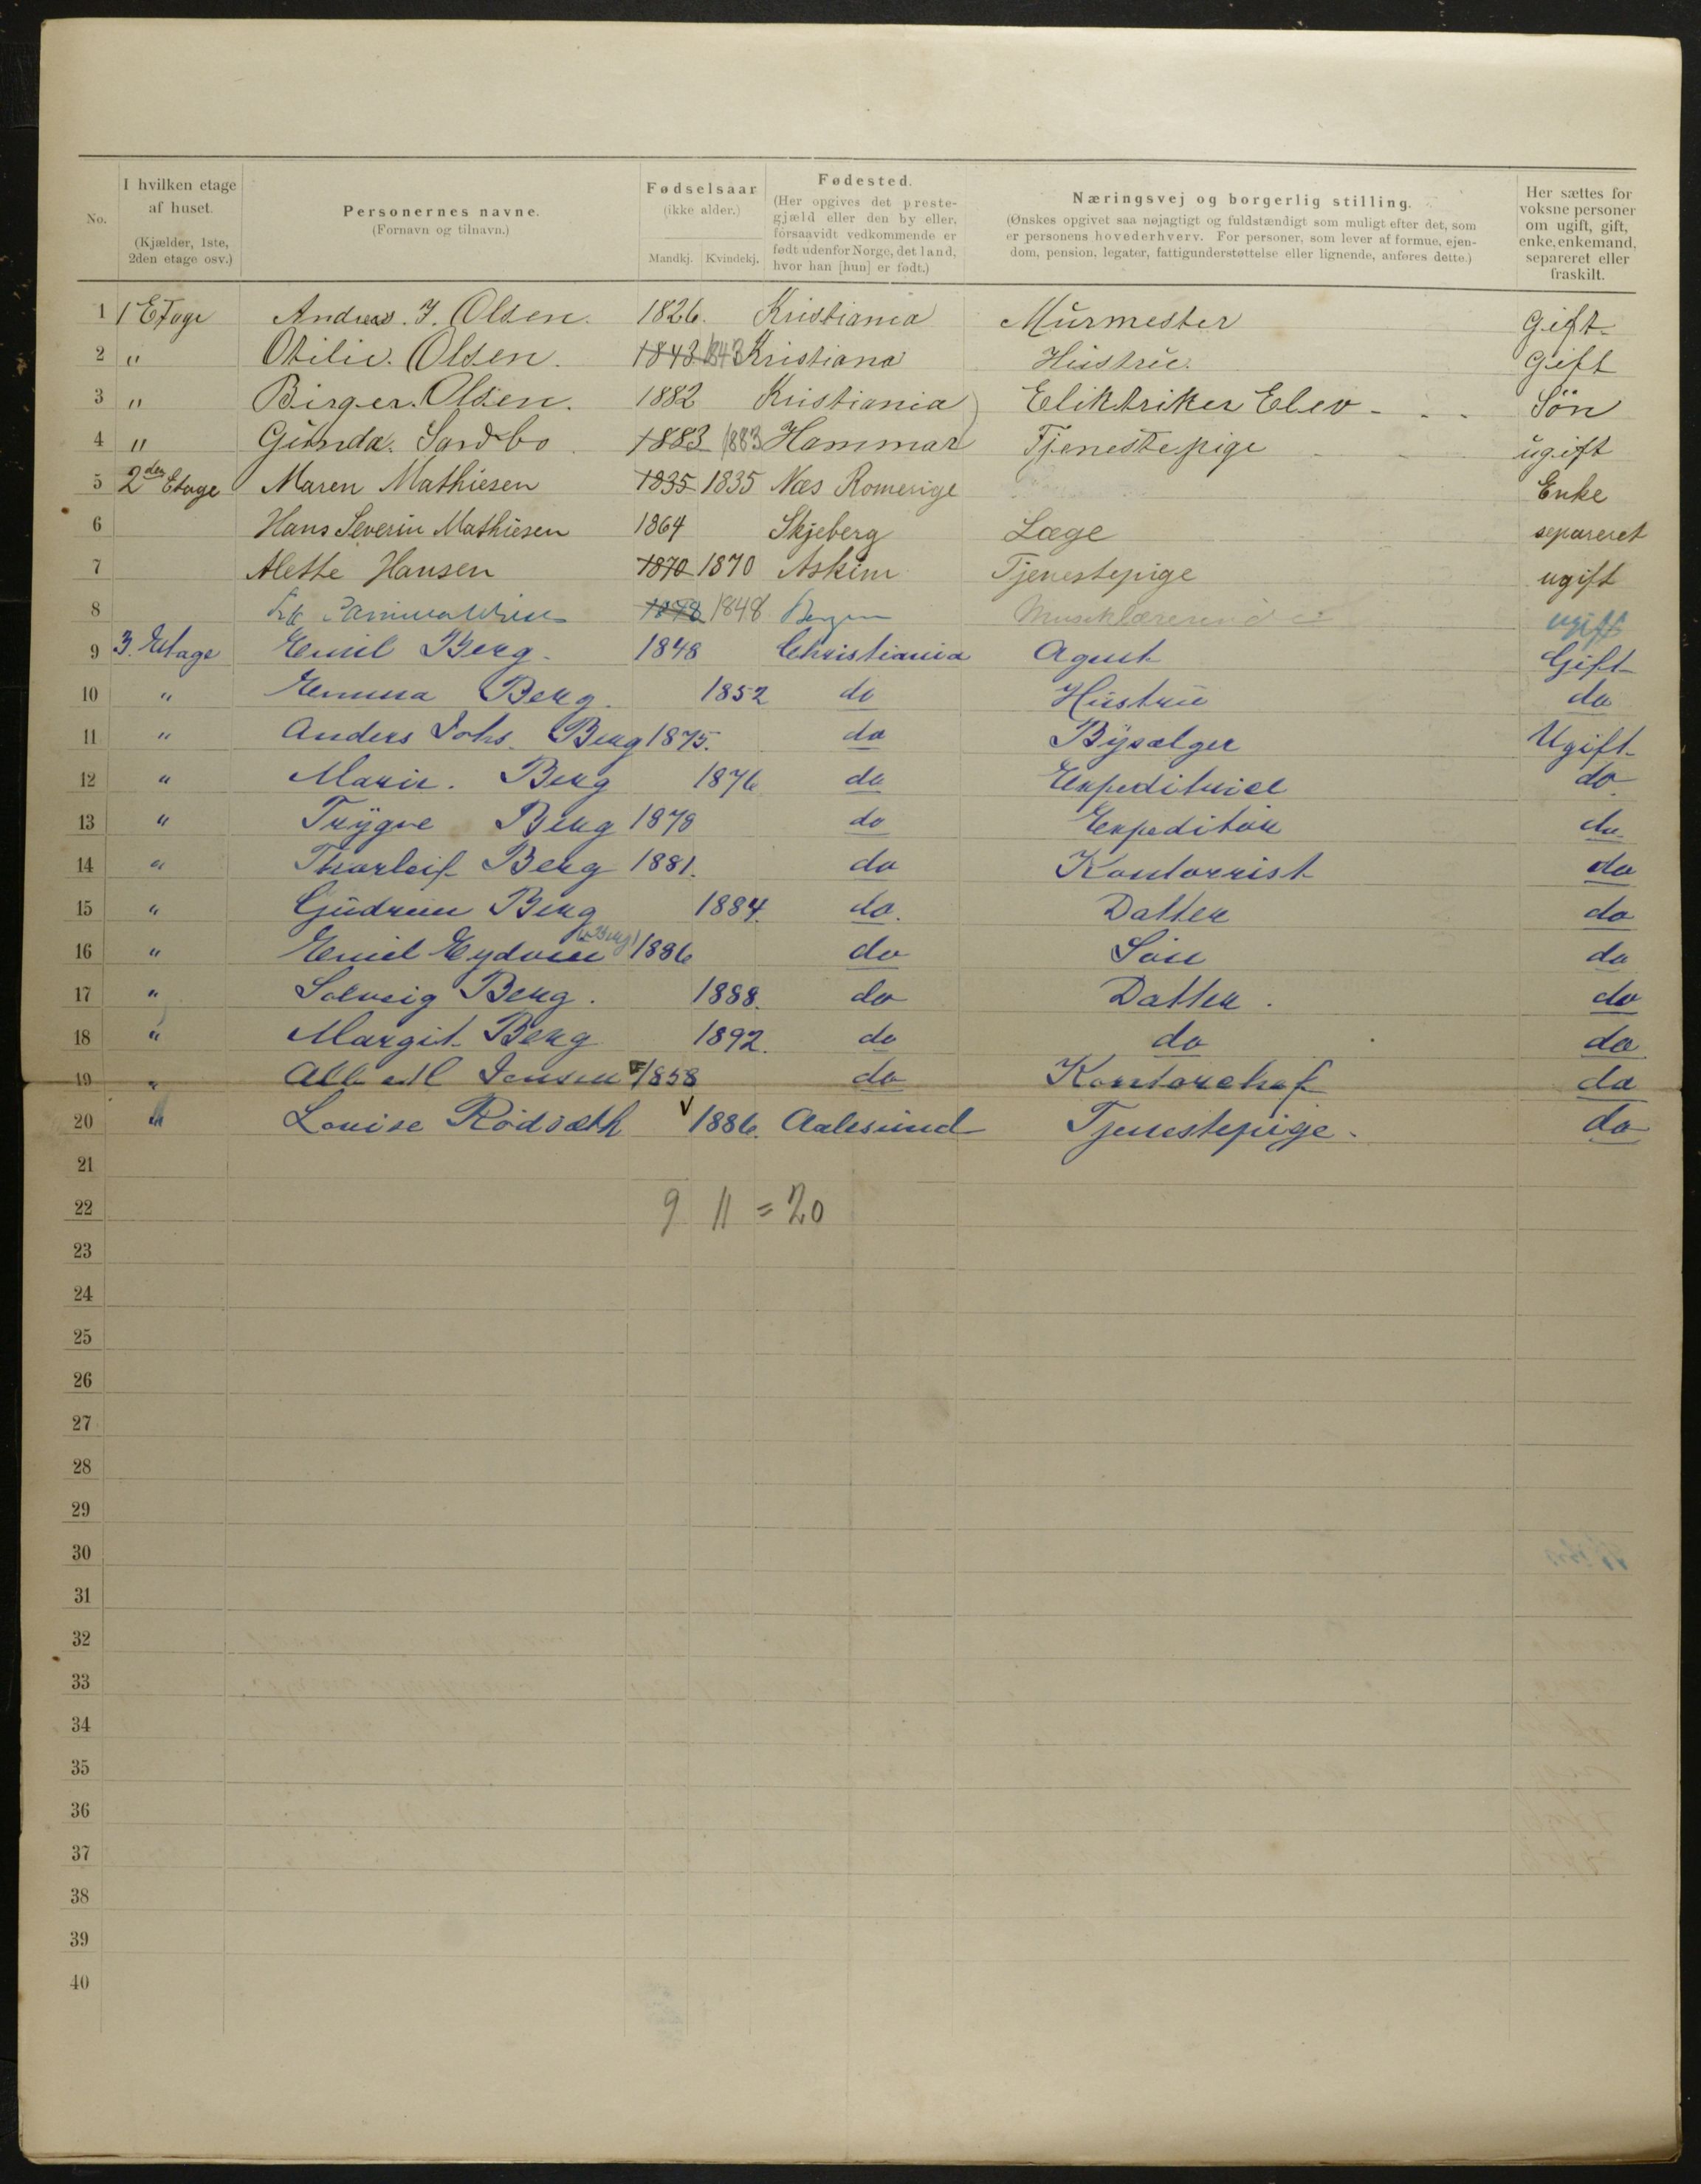 No.
I hvilken etage af huset. (Kjælder, 1ste, 2den etage osv.)
Personernes navne. (Fornavn og tilnavn.)
Fødselsaar (ikke alder.) Mandkj. Kvindekj.
Fødested. (Her opgives det prestegjæld eller den by eller, forsaavidt vedkommende er født udenfor Norge, det land, hvor han [hun] er født.)
Næringsvej og borgerlig stilling. (Ønskes opgivet saa nøjagtigt og fuldstændigt som muligt efter det, som er personens hovederhverv. For personer, som lever af formue, ejendom, pension, legater, fattigunderstøttelse eller lignende, anføres dette.)
Her sættes for voksne personer om ugift, gift, enke, enkemand, separeret eller fraskilt.
1 1 Etage Andreas. J. Olsen. 1826. Kristiania Murmester Gift
2 " Otilie. Olsen. 1843 1843 Kristiana Hustru. Gift
3 " Birger. Olsen. 1882 Kristiania Eliktriker Elev - - - Sön
4 " Gunda. Sandbo 1883 1883 Hammar Tjenestepige ugift
5 2den Etage Maren Mathiesen 1835 1835 Næs Romerige Enke
6 Hans Severin Mathiesen 1864 Skjeberg Læge separeret
7 Alette Hansen 1870 1870 Askim Tjenestepige ugift
8 1848 1848 Bergen Musiklærerinde ugift
9 3. Etage Emil Berg. 1848 Christiania Agent Gift
10 " Emma Berg. 1852 do Hustru do
11 " Anders Johs. Berg 1875. do Bysælger Ugift
12 " Marie. Berg 1876 do Expeditrice do
13 " Trygve Berg 1878 do Expeditør do
14 " Thorleif Berg 1881. do Kontorrist do
15 " Gudrun Berg 1884. do. Datter do
16 " Emil Eydvin (Berg) 1886 do Søn do
17 " Solveig Berg. 1888. do Datter. do
18 " Margit Berg 1892. do do do
19 " Jensen 1858 do Kontorchef do
20 " Louise Rödsæth 1886. Aalesund Tjenestepige. do
21
22 9 11 = 20
23
24
25
26
27
28
29
30
31
32
33
34
35
36
37
38
39
40